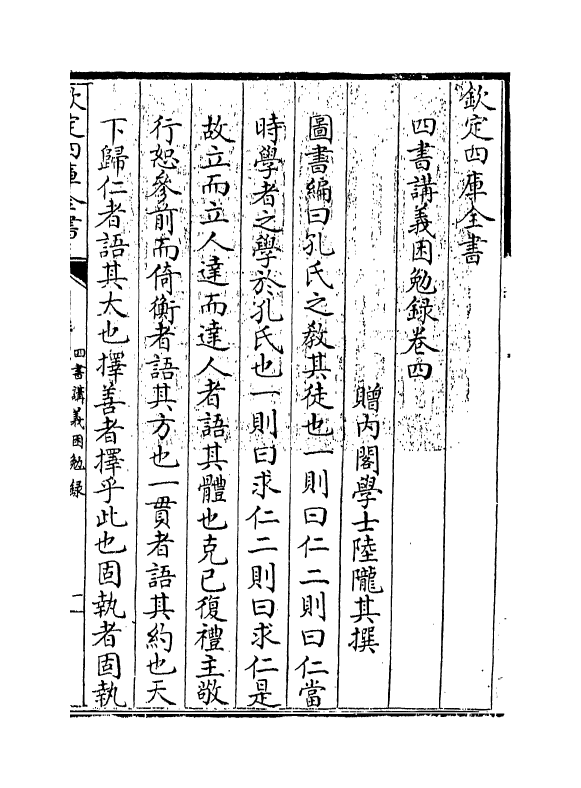 欽定四庫全書
四書講義困勉録卷四
贈内閣學士陸隴其撰
圖書編曰孔氏之教其徒也一則曰仁二則曰仁當
時學者之學於孔氏也一則曰求仁二則曰求仁是
故立而立人達而達人者語其體也克己復禮主敬
行恕參前而倚衡者語其方也一貫者語其約也天
下歸仁者語其大也擇善者擇乎此也固執者固執
欽定四庫全書
四書講義困勉録
一